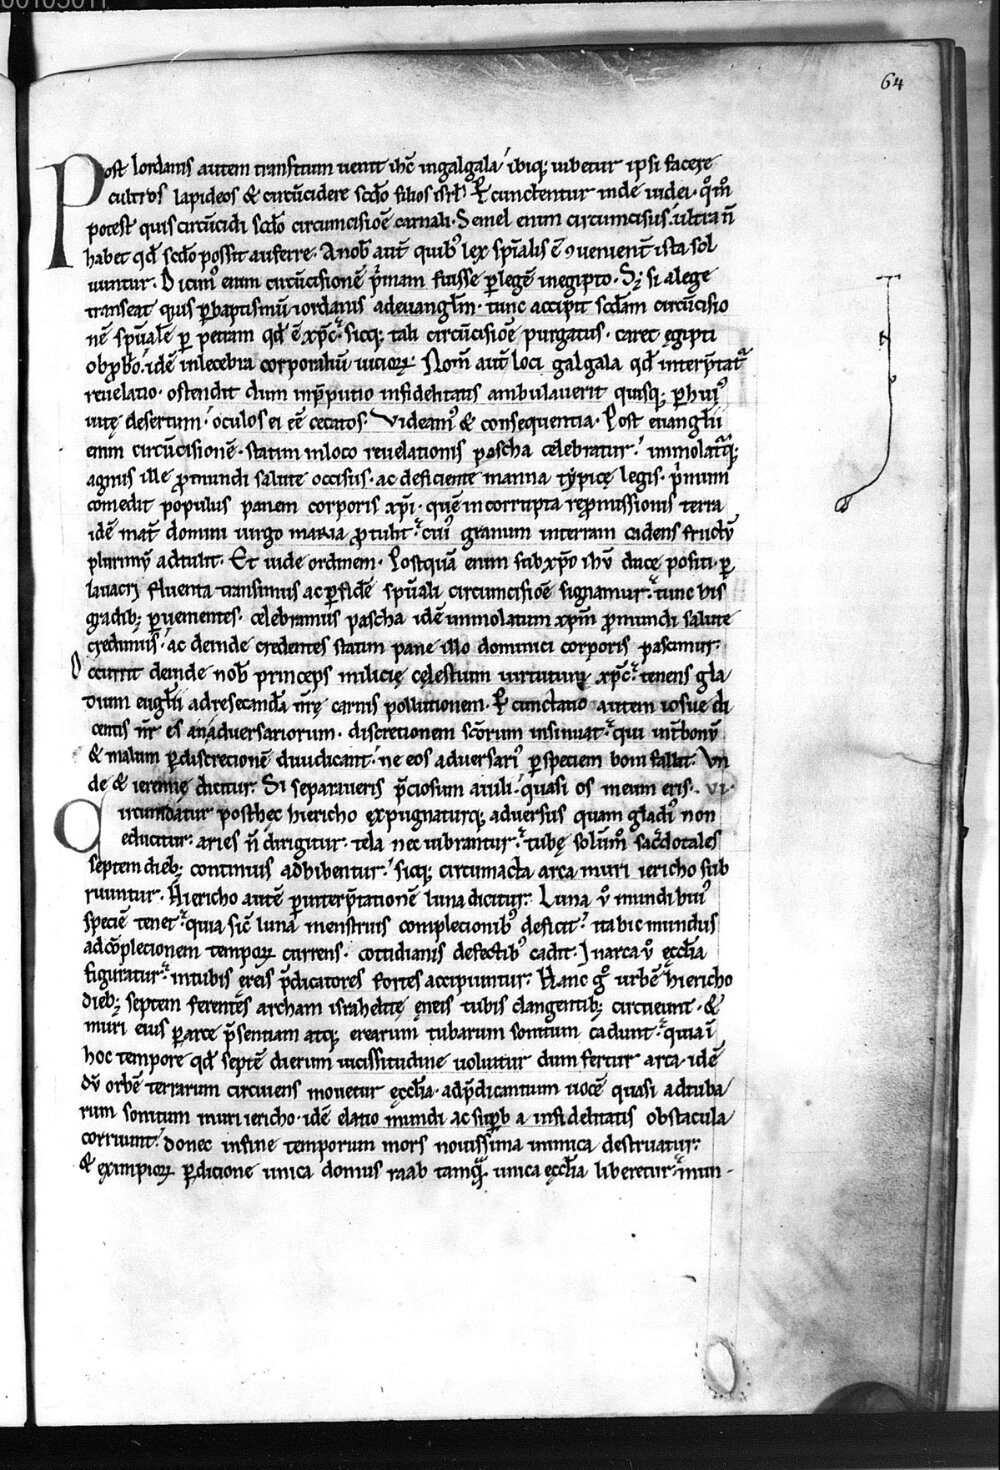 64
Post Iordanis autem transitum uenit ihc̄ ingalgala ibiq; iubetur ipsi facere
cultros lapideos & circūcidere scd̄o filios isrl̄. Percunctentur inde iudei. qͦm̊
potest quis circūcidi scd̄o circumcisiōe carnali. Semel enim circumcisus. ultra n̄
habet qd̄ scd̄o possit auferre. Anob̄ aut̄ quib' lex spīalis ē ɔuenient̄ ista sol
uuntur. Dicim' enim circūcisionē p̄mam fuisse ꝑlegē inegipto. Sꝫ si alege
transeat quis ꝑbaptismū iordanis adeuanglm̄. tunc accipit scd̄am circūcisio
nē spūalē ꝑ petram qd̄ ē xp̄c. sicq; tali circūcisiōe purgatus. caret ęgipti
obꝓbͦo. idē inlecebra corporaliū uicioꝝ. Nom̄ aut̄ loci galgala qd̄ interp̄tat̄
reuelatio. ostendit dum inp̄putio infidelitatis ambulauerit quisq; ꝑhui'
uitę desertum. oculos ei eē cecatos. Videam' & consequentia. Post euanglii
enim circūcisionē. statim inloco reuelationis pascha celebratur. immolatq;
agnus ille ꝓmundi salute occisus. ac deficiente manna typicę legis. p̄mum
comedit populus panem corporis xp̄i. quē incorrupta repmissionis terra
idē mat̄ domini uirgo maria ꝓtulit. cui' granum interram cadens fructū
plurimū adtulit. Et uide ordinem. Postquā enim subxp̄o ihū duce positi. ꝑ
lauacri fluenta transimus ac ꝑfidē spūali circumcisiōe signamur. tunc his
gradib; ꝑuenientes. celebramus pascha idē immolatum xpm̄ ꝓmundi salute
credimus. ac deinde credentes statim pane illo dominici corporis pascimur.
Occurrit deinde nob̄ princeps milicię cęlestium uirtutum xp̄c. tenens gla
dium euḡlii adresecandā nr̄ę carnis pollutionem. Percunctatio autem iosue di
centis nr̄ es anaduersariorum. discretionem sc̄orum insinuat. qui int̄bonū
& malum ꝑdiscretionē diiudicant. ne eos aduersari' ꝑspeciem boni fallat. Vn
de & ieremię dicitur. Si separaueris p̄ciosum auili. quasi os meum eris. VI.
Circumdatur posthęc hiericho expugnaturq; aduersus quam gladi' non
educitur. aries n̄ dirigitur. tela nec uibrantur. tubę solūm̊ sac̄dotales
septem dieb; continuis adhibentur. sicq; circumacta arca muri iericho sub
ruuntur. Hiericho autē ꝑinterp̄tationē luna dicitur. Luna v̊ mundi hui'
speciē tenet. quia sic̄ luna menstruis complecionib' deficit. ita hic mundus
adcōplecionem tempoꝝ currens. cotidianis defectib' cadit. Inarca v̊ ęccl̄a
figuratur. intubis ęreis p̄dicatores fortes accipiuntur. Hanc gͦ urbē hiericho
dieb; septem ferentes archam israhelitę ęneis tubis clangentib; circueunt. &
muri eius ꝑarcę p̄sentiam atq; erearum tubarum sonitum cadunt. quia ī
hoc tempore qd̄ septē dierum uicissitudine uoluitur dum fertur arca. idē
dū orbē terrarum circuiens mouetur ęccl̄a. adp̄dicantium uocē quasi adtuba
rum sonitum muri iericho. idē elatio mundi ac suꝑba infidelitatis obstacula
corruunt. donec infine temporum mors nouissima inimica destruatur.
& eximpioꝝ ꝑdicione unica domus raab tamq̄. unica ęccl̄a liberetur. mun-